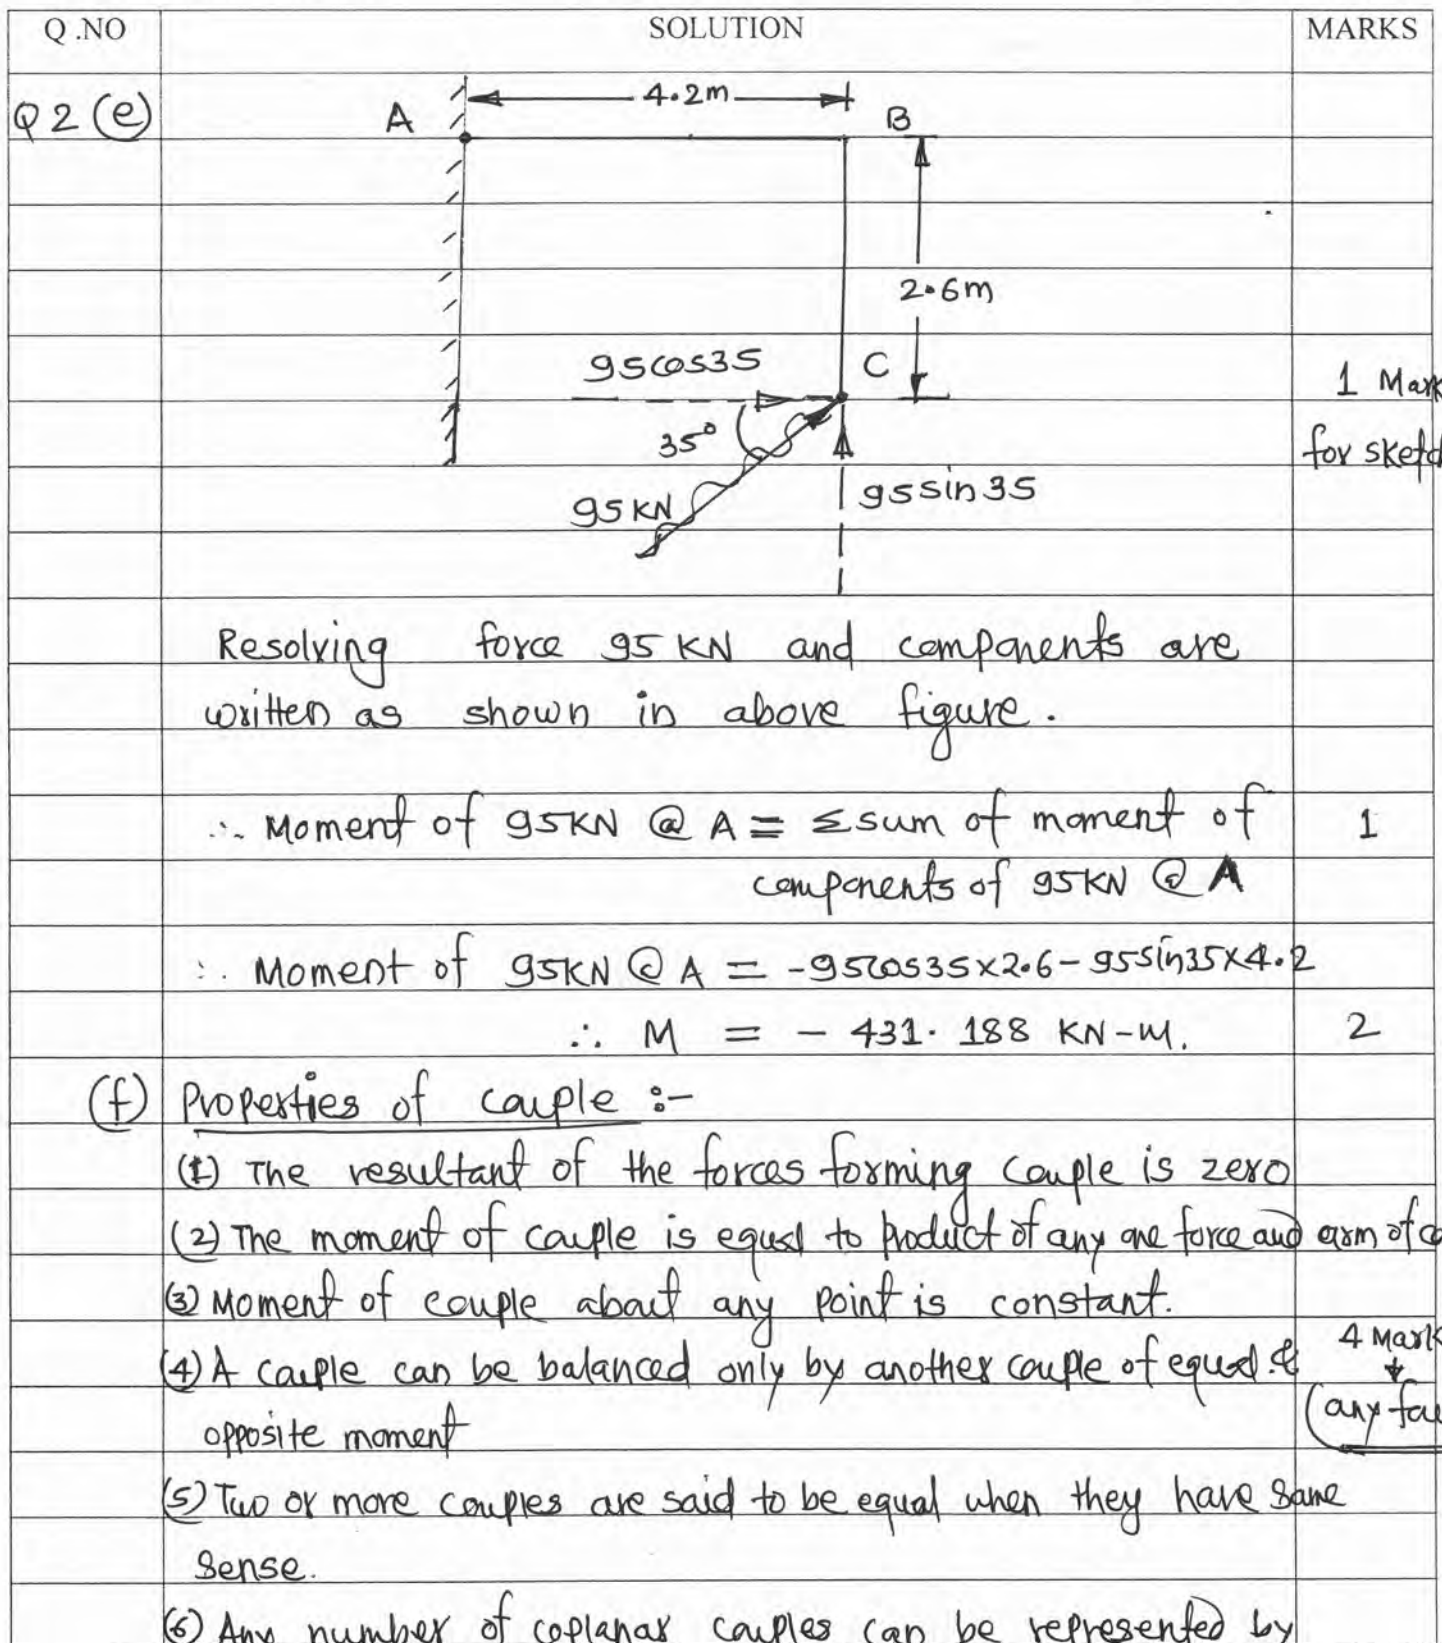 Q.NO SOLUTION MARKS
Q2 (e)
4.2m
A B
2.6m
95cos35 C
1 Mark
35°
for sketc
95 KN 95sin35
Resolving force 95 KN and components are
written as shown in above figure.
∴ Moment of 95KN @ A = Σsum of moment of 1
components of 95KN @ A
∴ Moment of 95KN @ A = -95cos35×2.6-95sin35×4.2
∴ M = - 431.188 KN-M. 2
(f) Properties of couple :-
(1) The resultant of the forces forming couple is zero
(2) The moment of couple is equal to product of any one force and arm of co
(3) Moment of couple about any point is constant.
(4) A couple can be balanced only by another couple of equal & 4 Mark
opposite moment (any fou
(5) Two or more couples are said to be equal when they have same
sense.
(6) Any number of coplanar couples can be represented by